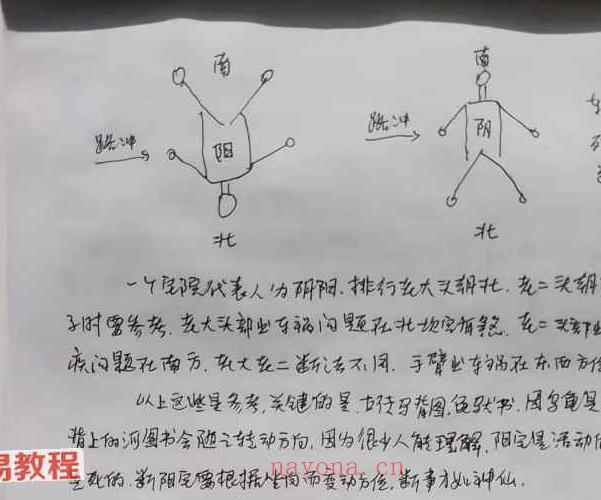 南 南
路冲 阳 路冲 阴
北 北
一个宅院代表人为阴阳.排行老大头朝北.老二头朝
子时要参考.老大头部出车祸问题在北坎宫有煞.老二头部出
疾问题在南方.老大老二断法不同.手臂出车祸在东西方位
以上这些是参考,关键的是
背上的河图书会随之转动方向,因为很少人能理解,阳宅是活动的
是死的.断阳宅要根据坐向而变动方位,断事才如神仙.
易教程
nayona.cn